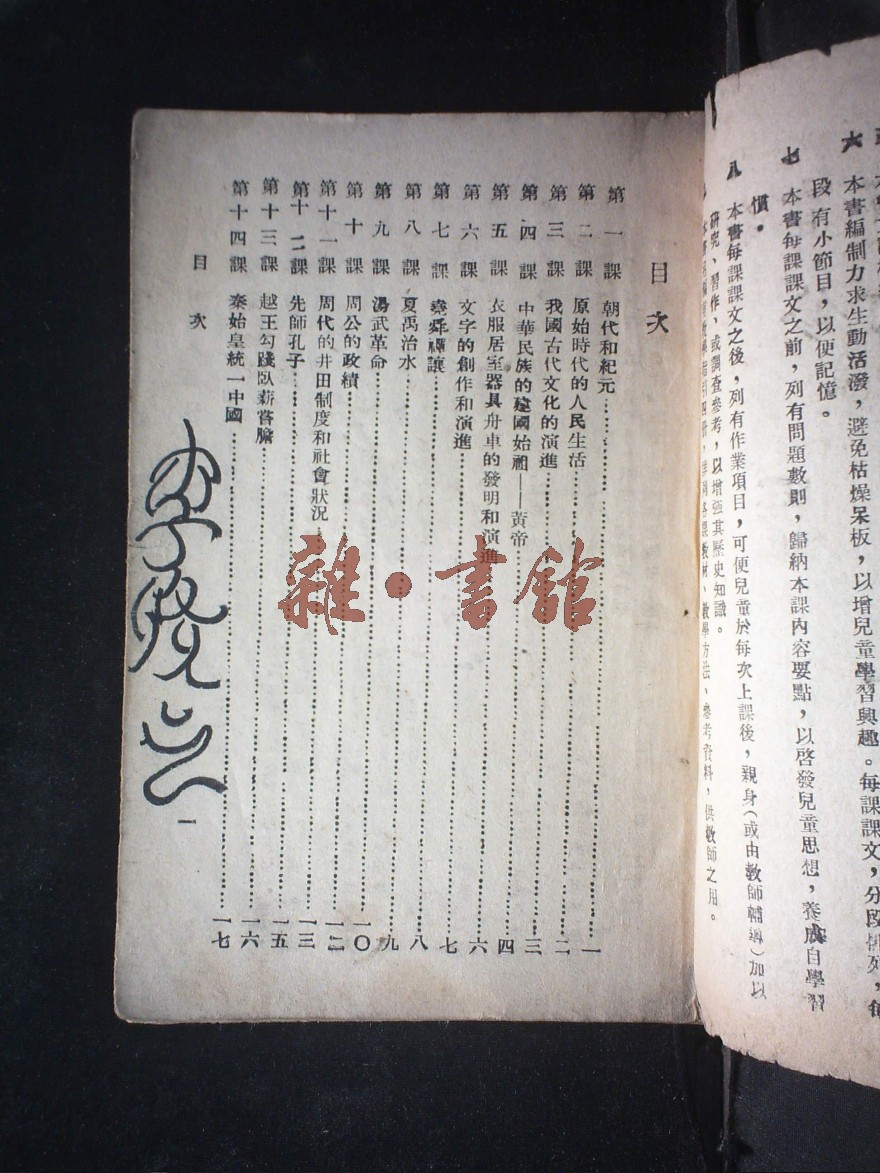 六 本書編制力求生動活潑，避免枯燥呆板，以增兒童學習興趣。每課課文，分段排列，每
段有小節目，以便記憶。
七 本書每課課文之前，列有問題數則，歸納本課內容要點，以啓發兒童思想，養成自學習
慣。
八 本書每課課文之後，列有作業項目，可便兒童於每次上課後，親身（或由教師輔導）加以
研究、習作、或調查參考，以增強其歷史知識。
教材、教學方法、參考資料，供教師之用。
目次
第一課 朝代和紀元 一
第二課 原始時代的人民生活 二
第三課 我國古代文化的演進 三
第四課 中華民族的建國始祖——黃帝 四
第五課 衣服居室器具舟車的發明和演進 六
第六課 文字的創作和演進 七
第七課 堯舜禪讓 八
第八課 夏禹治水 九
第九課 湯武革命 一〇
第十課 周公的政績 一二
第十一課 周代的井田制度和社會狀況 一三
第十二課 先師孔子 一五
第十三課 越王勾踐臥薪嘗膽 一六
第十四課 秦始皇統一中國 一七
目次
一
雜·書館